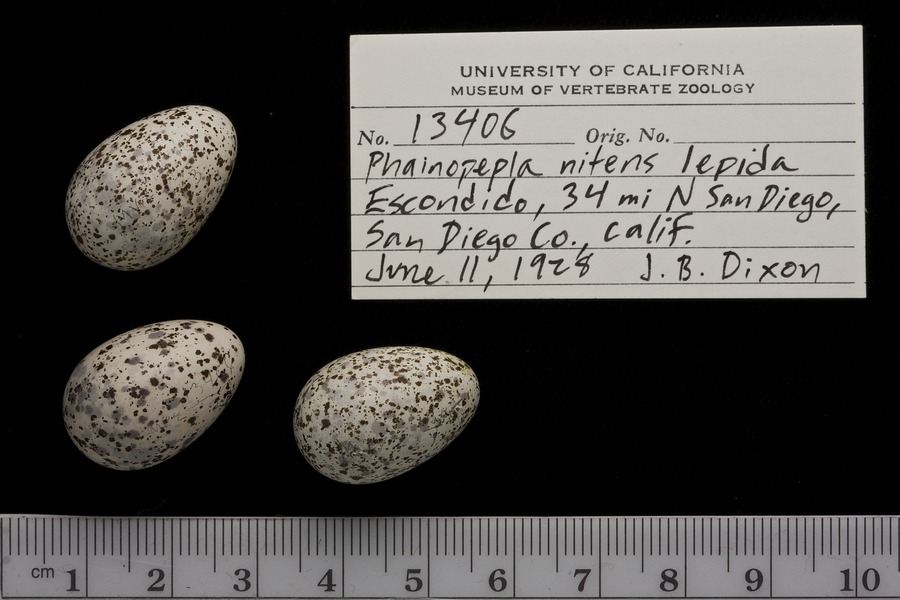 UNIVERSITY OF CALIFORNIA
MUSEUM OF VERTEBRATE ZOOLOGY
No. 13406 Orig. No.
Phainopepla nitens lepida
Escondido, 34 mi N San Diego,
San Diego Co., Calif.
June 11, 1928 J. B. Dixon
cm 1 2 3 4 5 6 7 8 9 10